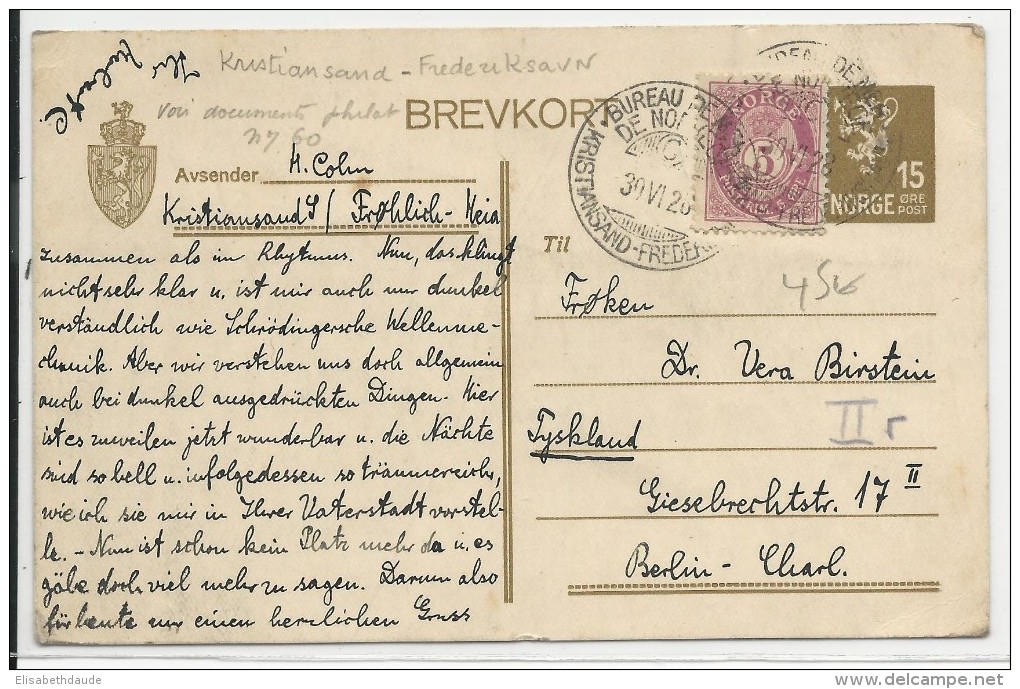 Kristiansand - Frederiksavn
Voir documents philat
n° 60
BREVKORT
Avsender H. Cohn
Kristiansand S / Fröhlich-Heia
zusammen als im Rhytmus. Nun, das klingt
nicht sehr klar u. ist mir auch nur dunkel
verständlich wie Schrödingersche Wellenme-
chanik. Aber wir verstehen uns doch allgemein
auch bei dunkel ausgedrückten Dingen. Hier
ist es zuweilen jetzt wunderbar u. die Nächte
sind so hell u. infolgedessen so träumereich,
wie ich sie mir in Ihrer Vaterstadt vorstel-
le. - Nun ist schon kein Platz mehr da u. es
gäbe doch viel mehr zu sagen. Darum also
für heute nur einen herzlichen Gruss
Ihr
BUREAU DE MER
DE NOR
30 VI 28
KRISTIANSAND-FREDERI
NORGE
5
POSTFRIM. 5 ØRE
15
NORGE ØRE
POST
Til
45k
Frøken
Dr. Vera Birstein
II r
Tyskland
Giesebrechtstr. 17 II
Berlin - Charl.
Elisabethdaude
delcampe.net